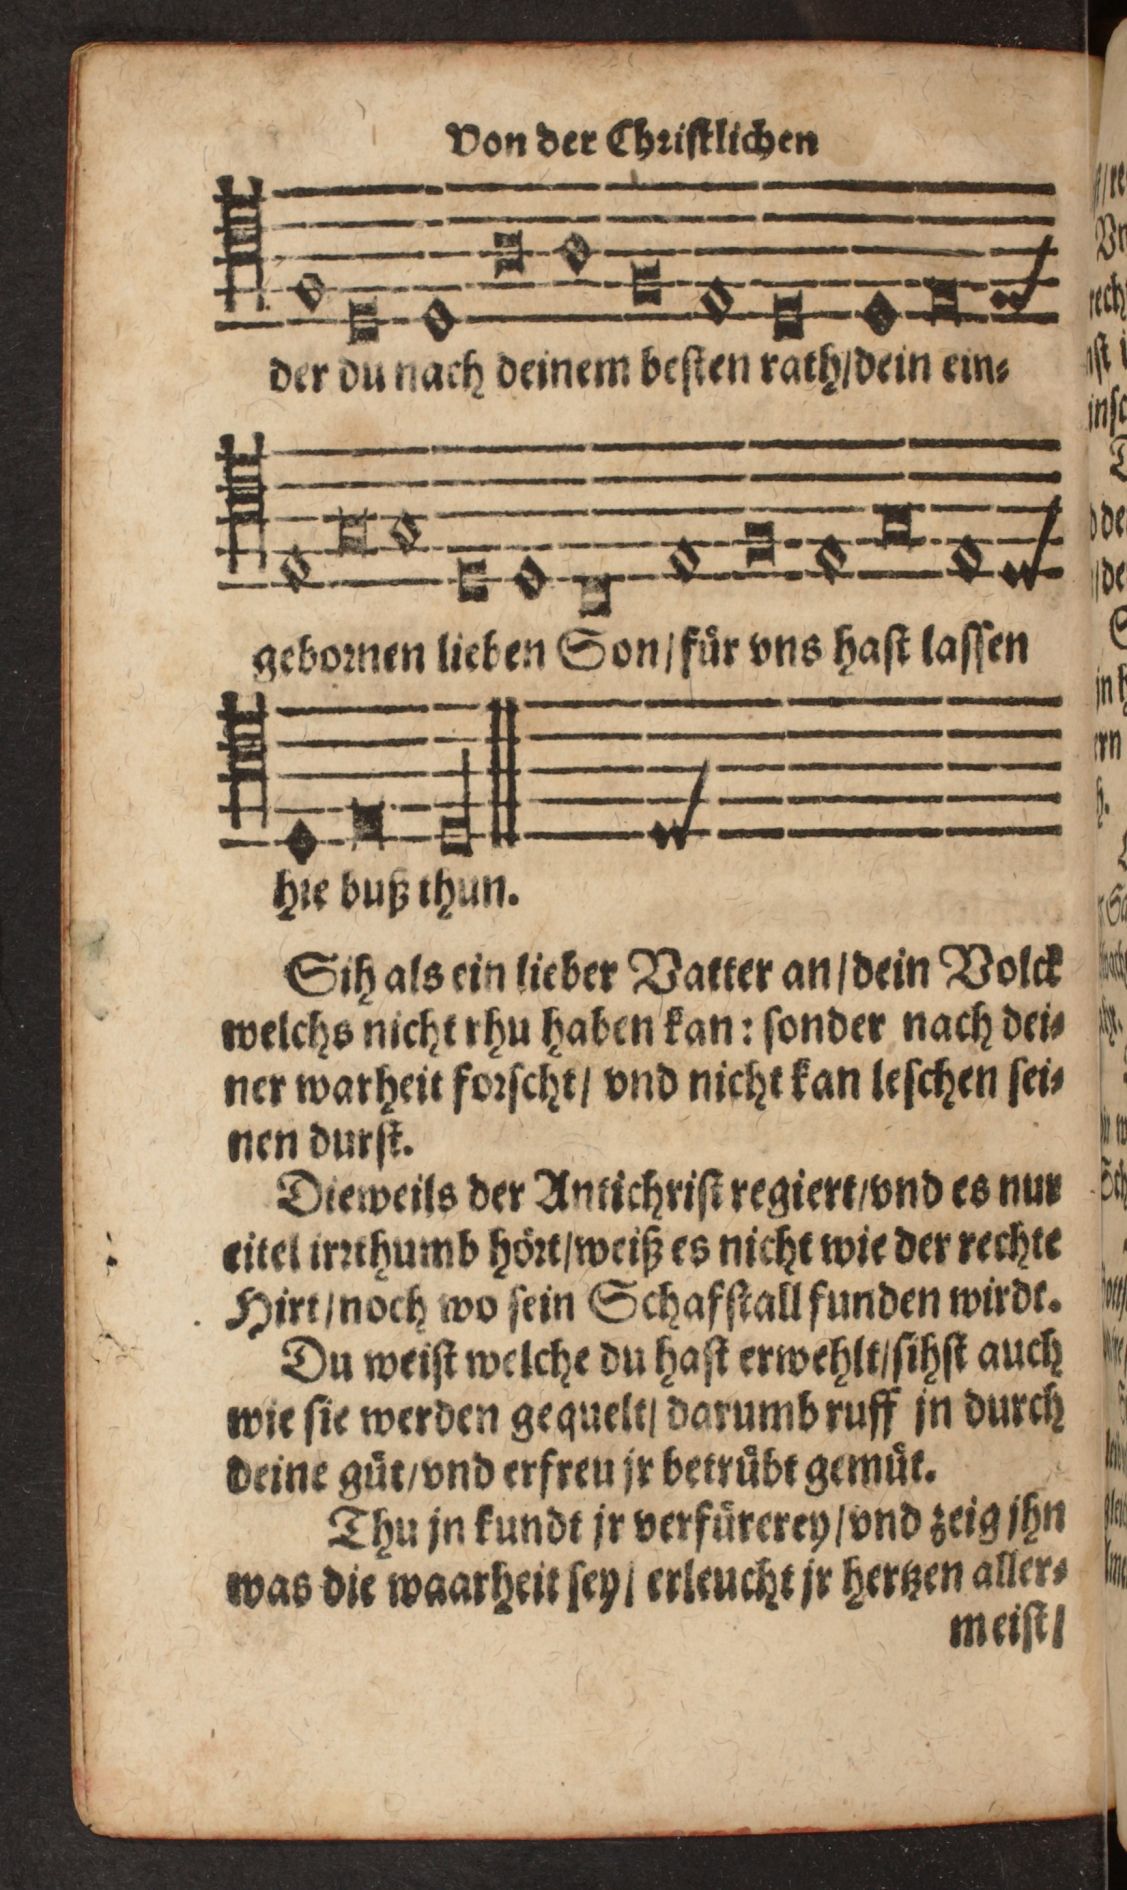 Von der Christlichen
der du nach deinem besten rath/dein ein-
gebornen lieben Son/für vns hast lassen
hie buß thun.
Sih als ein lieber Vatter an/dein Volck
welchs nicht rhu haben kan: sonder nach dei-
ner warheit forscht/ vnd nicht kan leschen sei-
nen durst.
Dieweils der Antichrist regiert/vnd es nur
eitel irrthumb hört/weiß es nicht wie der rechte
Hirt/noch wo sein Schafstall funden wirdt.
Du weist welche du hast erwehlt/sihst auch
wie sie werden gequelt/ darumb ruff jn durch
deine güt/vnd erfreu jr betrübt gemüt.
Thu jn kundt jr verfürerey/vnd zeig jhn
was die waarheit sey/ erleucht jr hertzen aller-
meist/